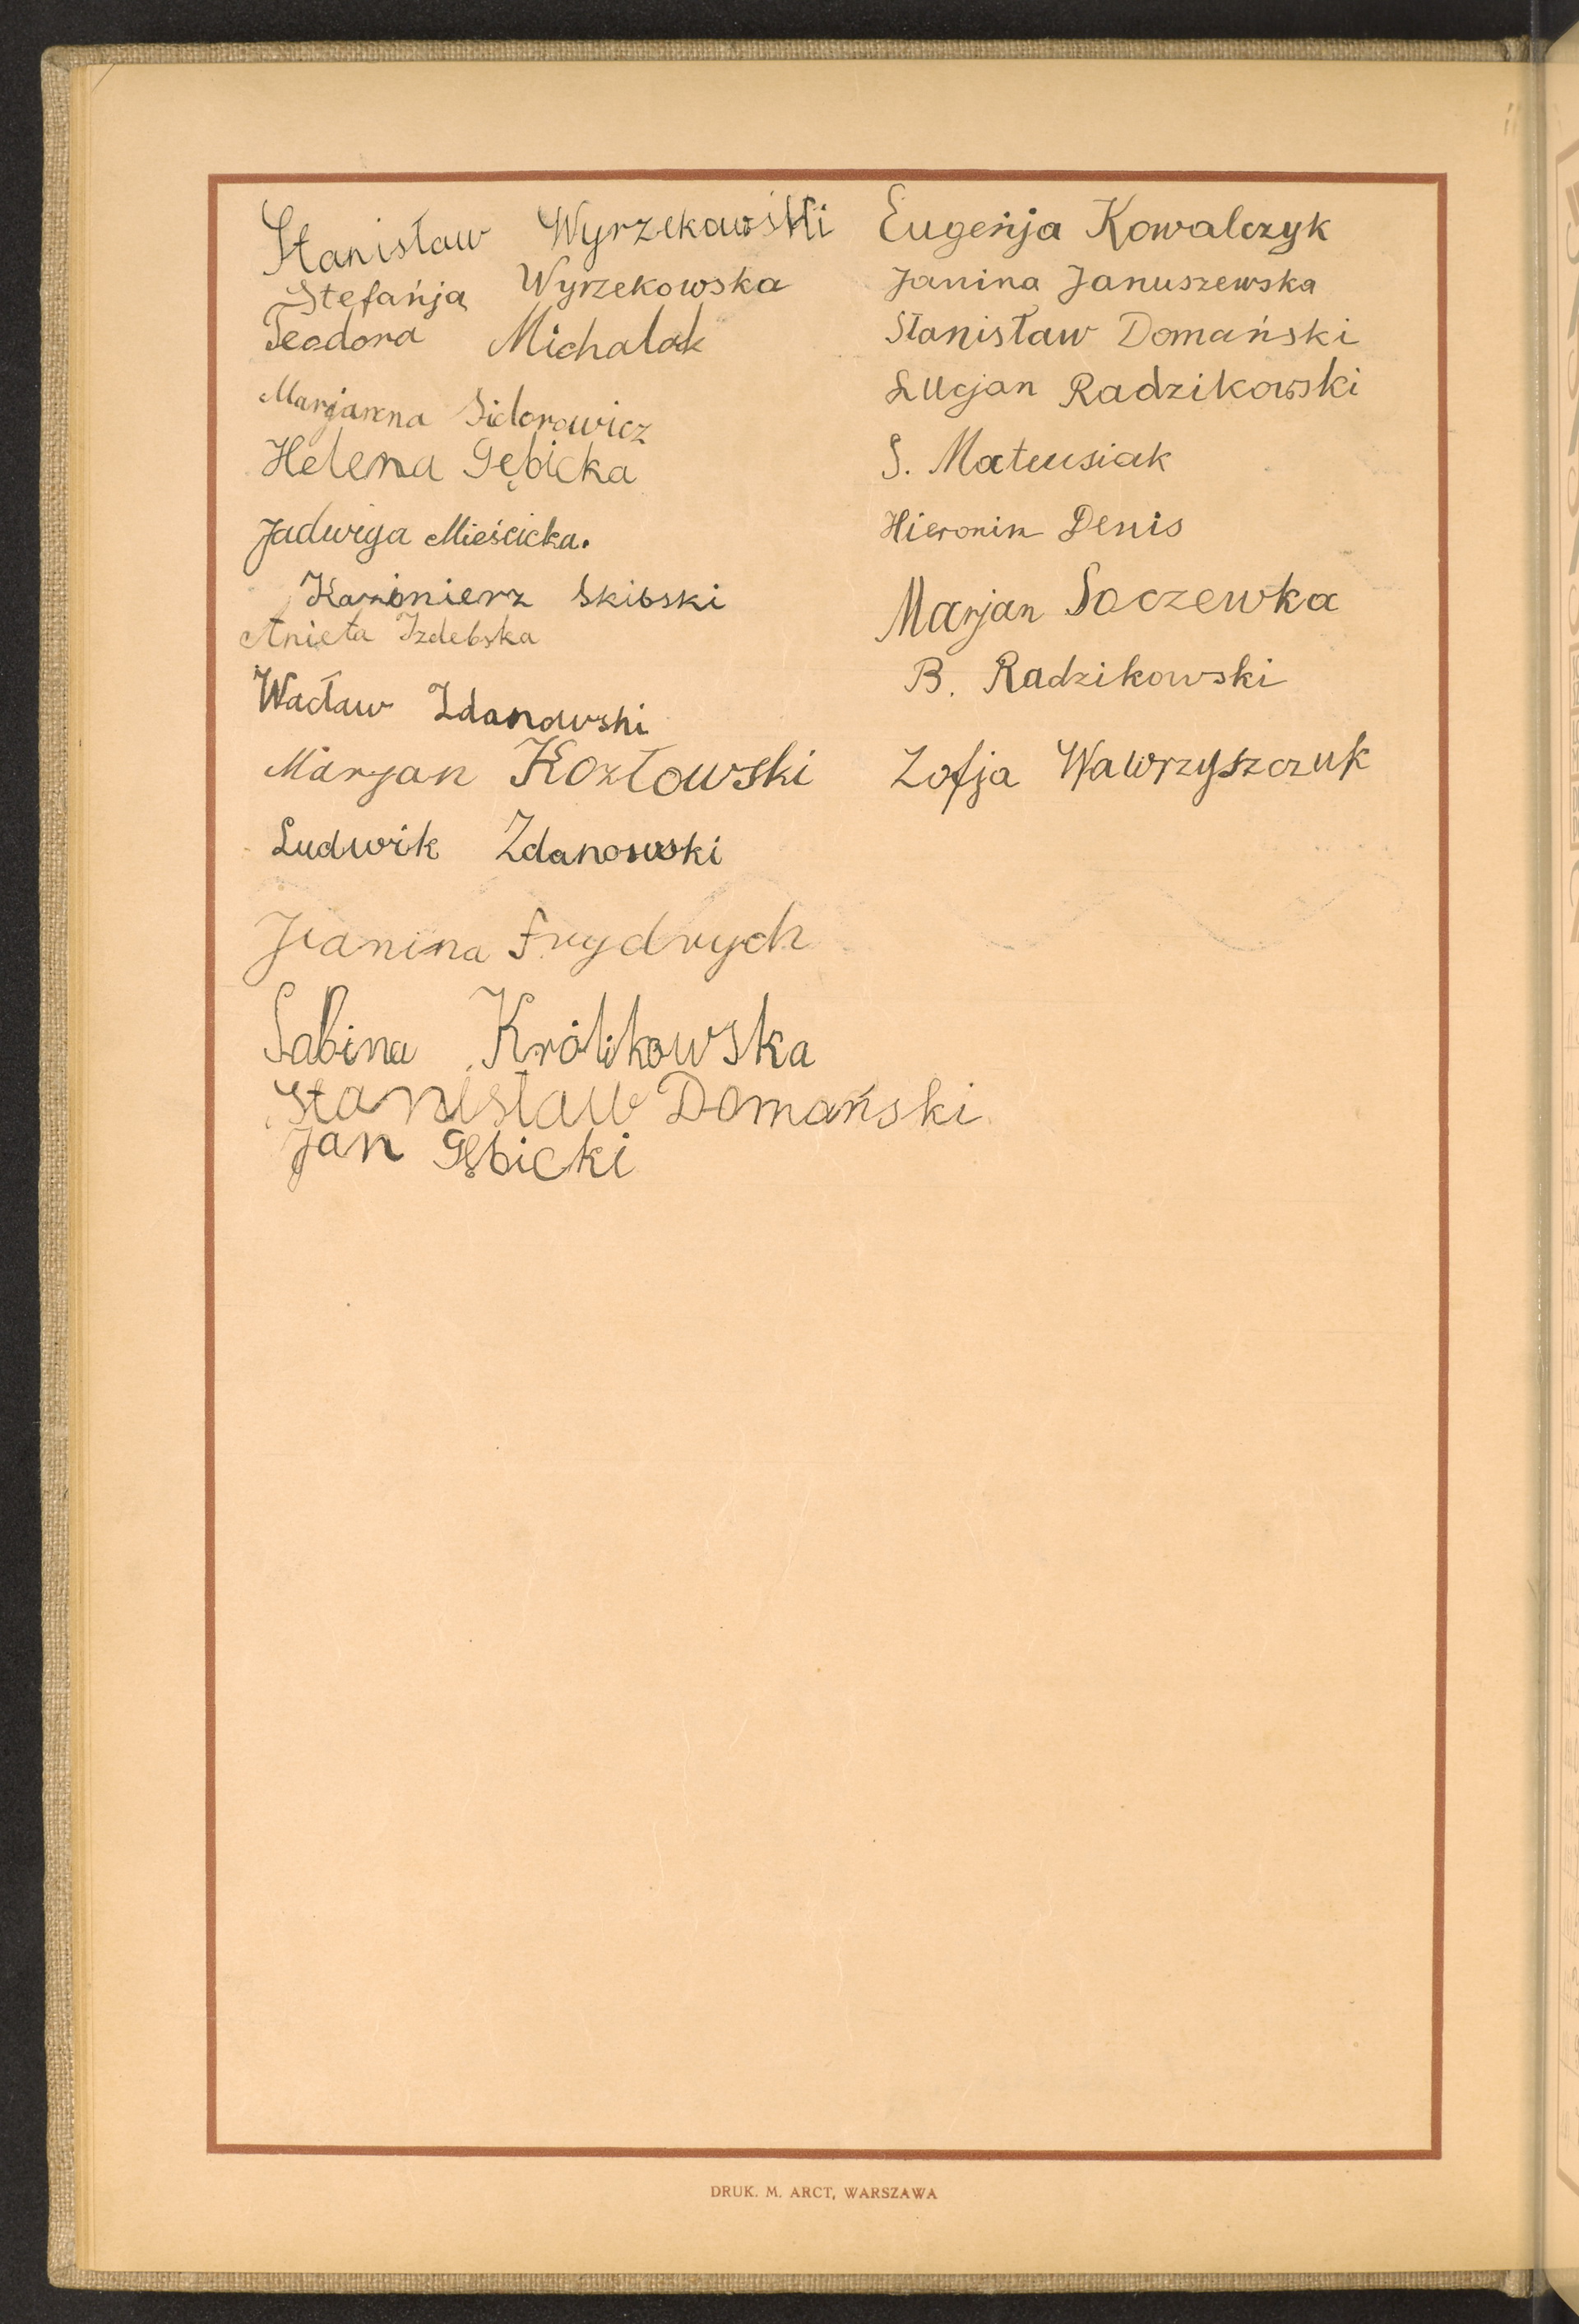 Stanisław Wyrzekowski
Stefańja Wyrzekowska
Teodora Michalak
Marjanna Sidorowicz
Helena Gębicka
Jadwiga Mieścicka.
Kazimierz Skibski
Anieta Izdebska
Wacław Zdanowski
Marjan Kozłowski
Ludwik Zdanowski
Janina Frydrych
Sabina Królikowska
Stanisław Domański
Jan Gębicki
Eugenja Kowalczyk
Janina Januszewska
Stanisław Domański
Lucjan Radzikowski
S. Mateusiak
Hieronim Denis
Marjan Soczewka
B. Radzikowski
Zofja Wawrzyszczuk
DRUK. M. ARCT, WARSZAWA